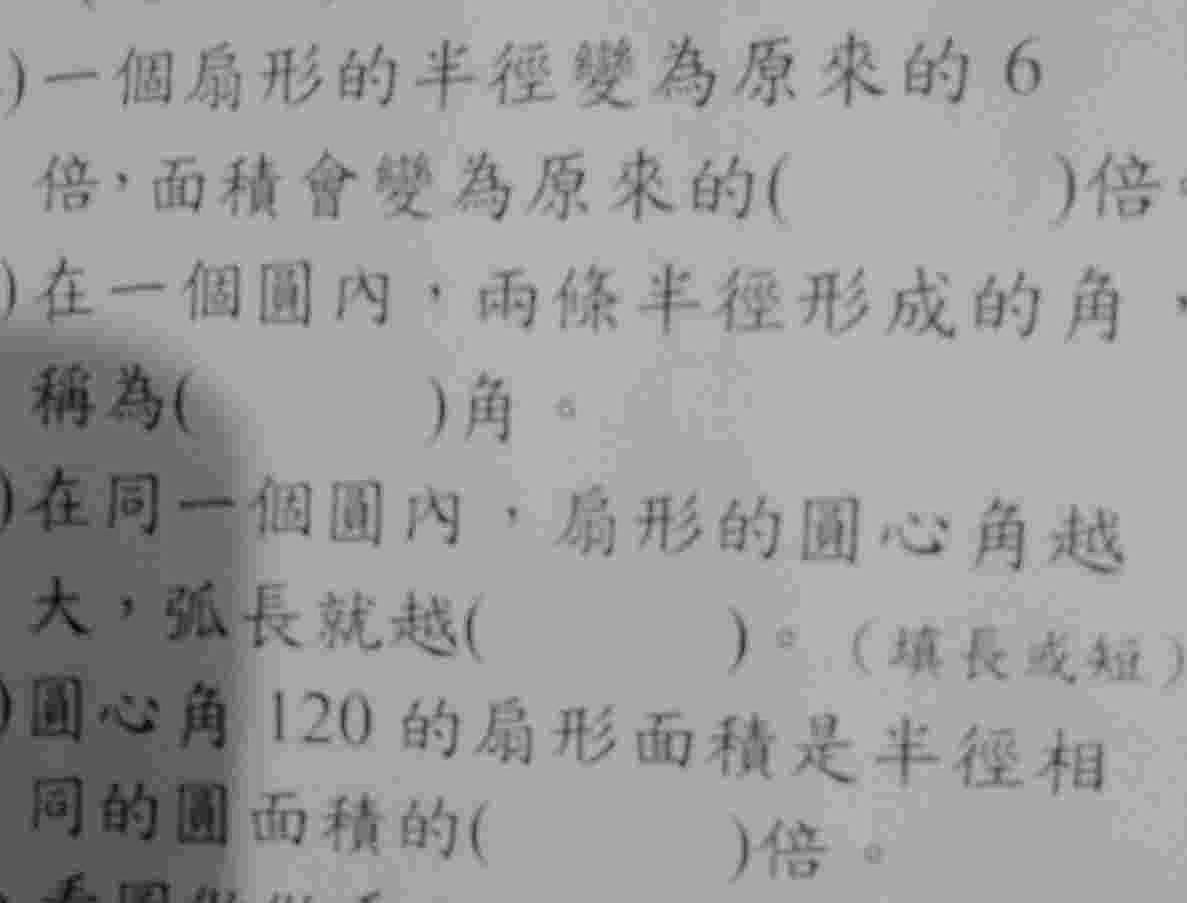 )一個扇形的半徑變為原來的 6
倍,面積會變為原來的( )倍。
)在一個圓內,兩條半徑形成的角,
稱為( )角。
)在同一個圓內,扇形的圓心角越
大,弧長就越( )。(填長或短)
)圓心角 120 的扇形面積是半徑相
同的圓面積的( )倍。